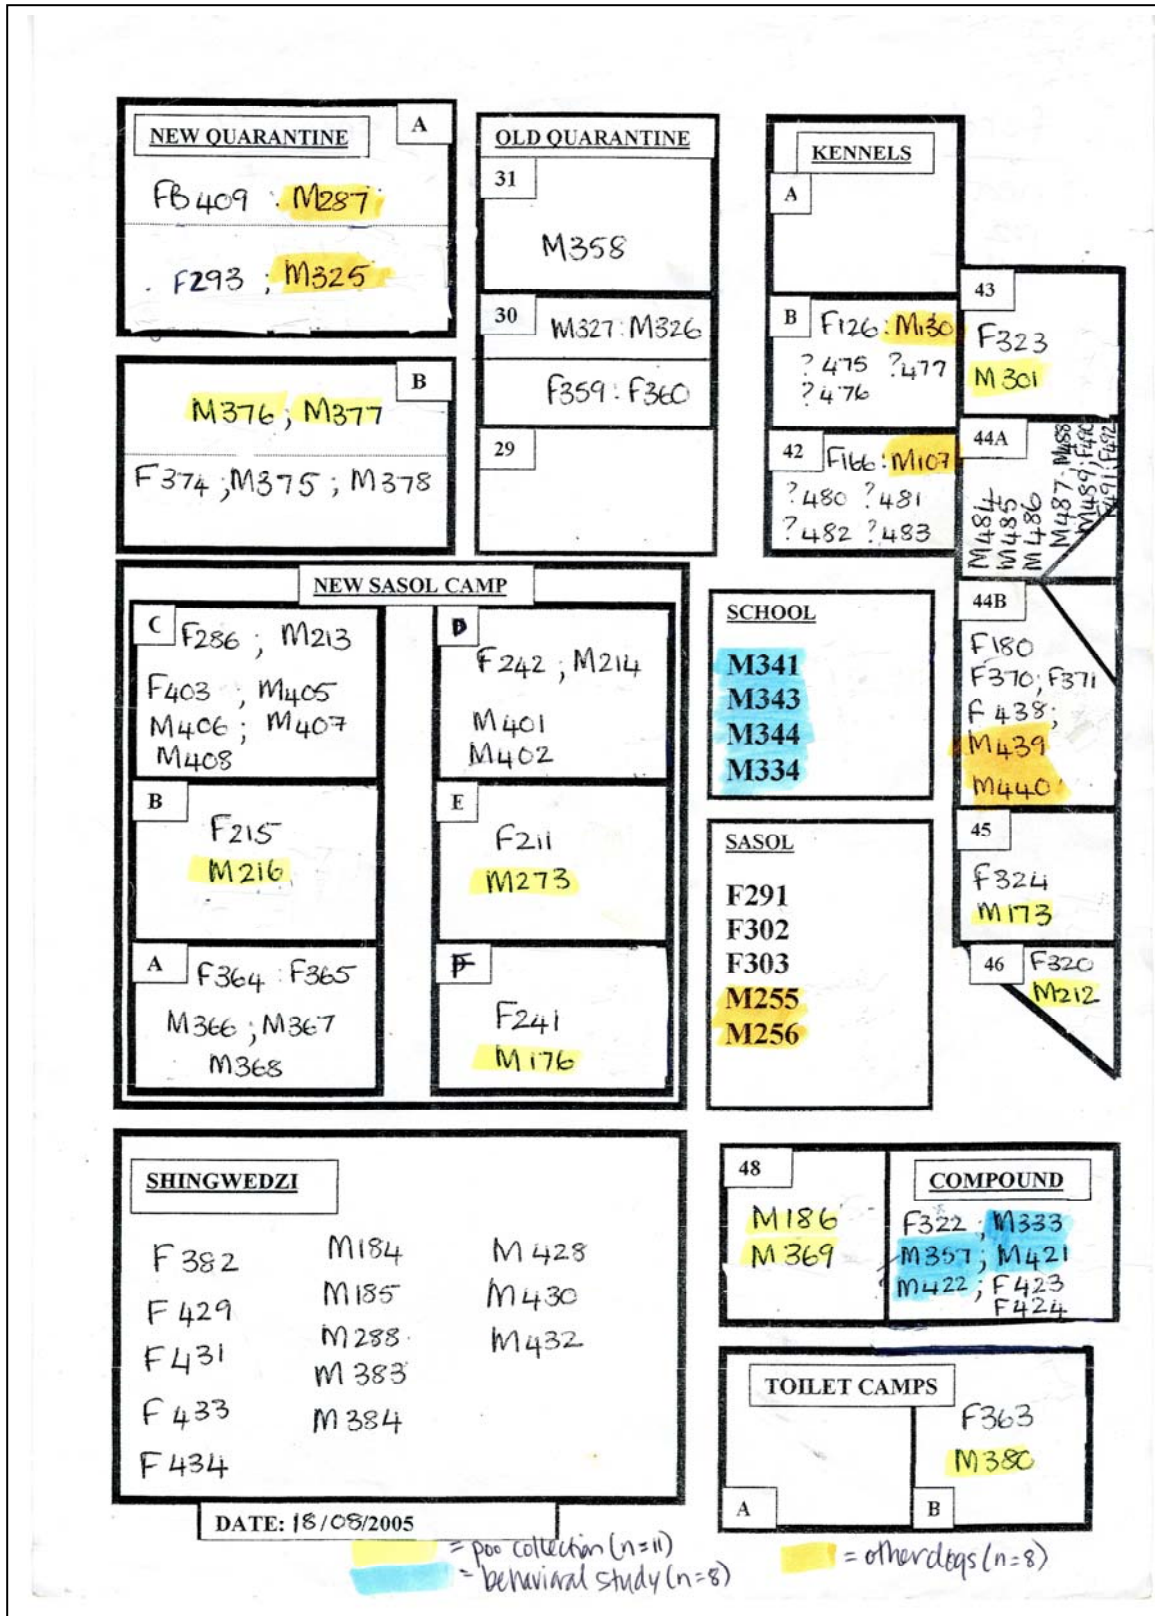 NEW QUARANTINE
A
FB409 : M287
F293 ; M325
B
M376 ; M377
F374 ; M375 ; M378
OLD QUARANTINE
31
M358
30
M327 : M326
F359 : F360
29
KENNELS
A
B
F126 : M130
? 475 ? 477
? 476
42
F166 : M107
? 480 ? 481
? 482 ? 483
43
F323
M301
44A
M484
M485
M486
M487 ; M488
M489 ; F490
F491 ; F492
44B
F180
F370 ; F371
F438 ;
M439
M440
45
F324
M173
46
F320
M212
NEW SASOL CAMP
C
F286 ; M213
F403 ; M405
M406 ; M407
M408
B
F215
M216
A
F364 : F365
M366 ; M367
M368
D
F242 ; M214
M401
M402
E
F211
M273
F
F241
M176
SCHOOL
M341
M343
M344
M334
SASOL
F291
F302
F303
M255
M256
SHINGWEDZI
F382
F429
F431
F433
F434
M184
M185
M288
M383
M384
M428
M430
M432
48
M186
M369
COMPOUND
F322 ; M333
M357 ; M421
M422 ; F423
F424
TOILET CAMPS
A
B
F363
M380
DATE: 18/08/2005
= poo collection (n=11)
= behavioral study (n=8)
= other dogs (n=8)